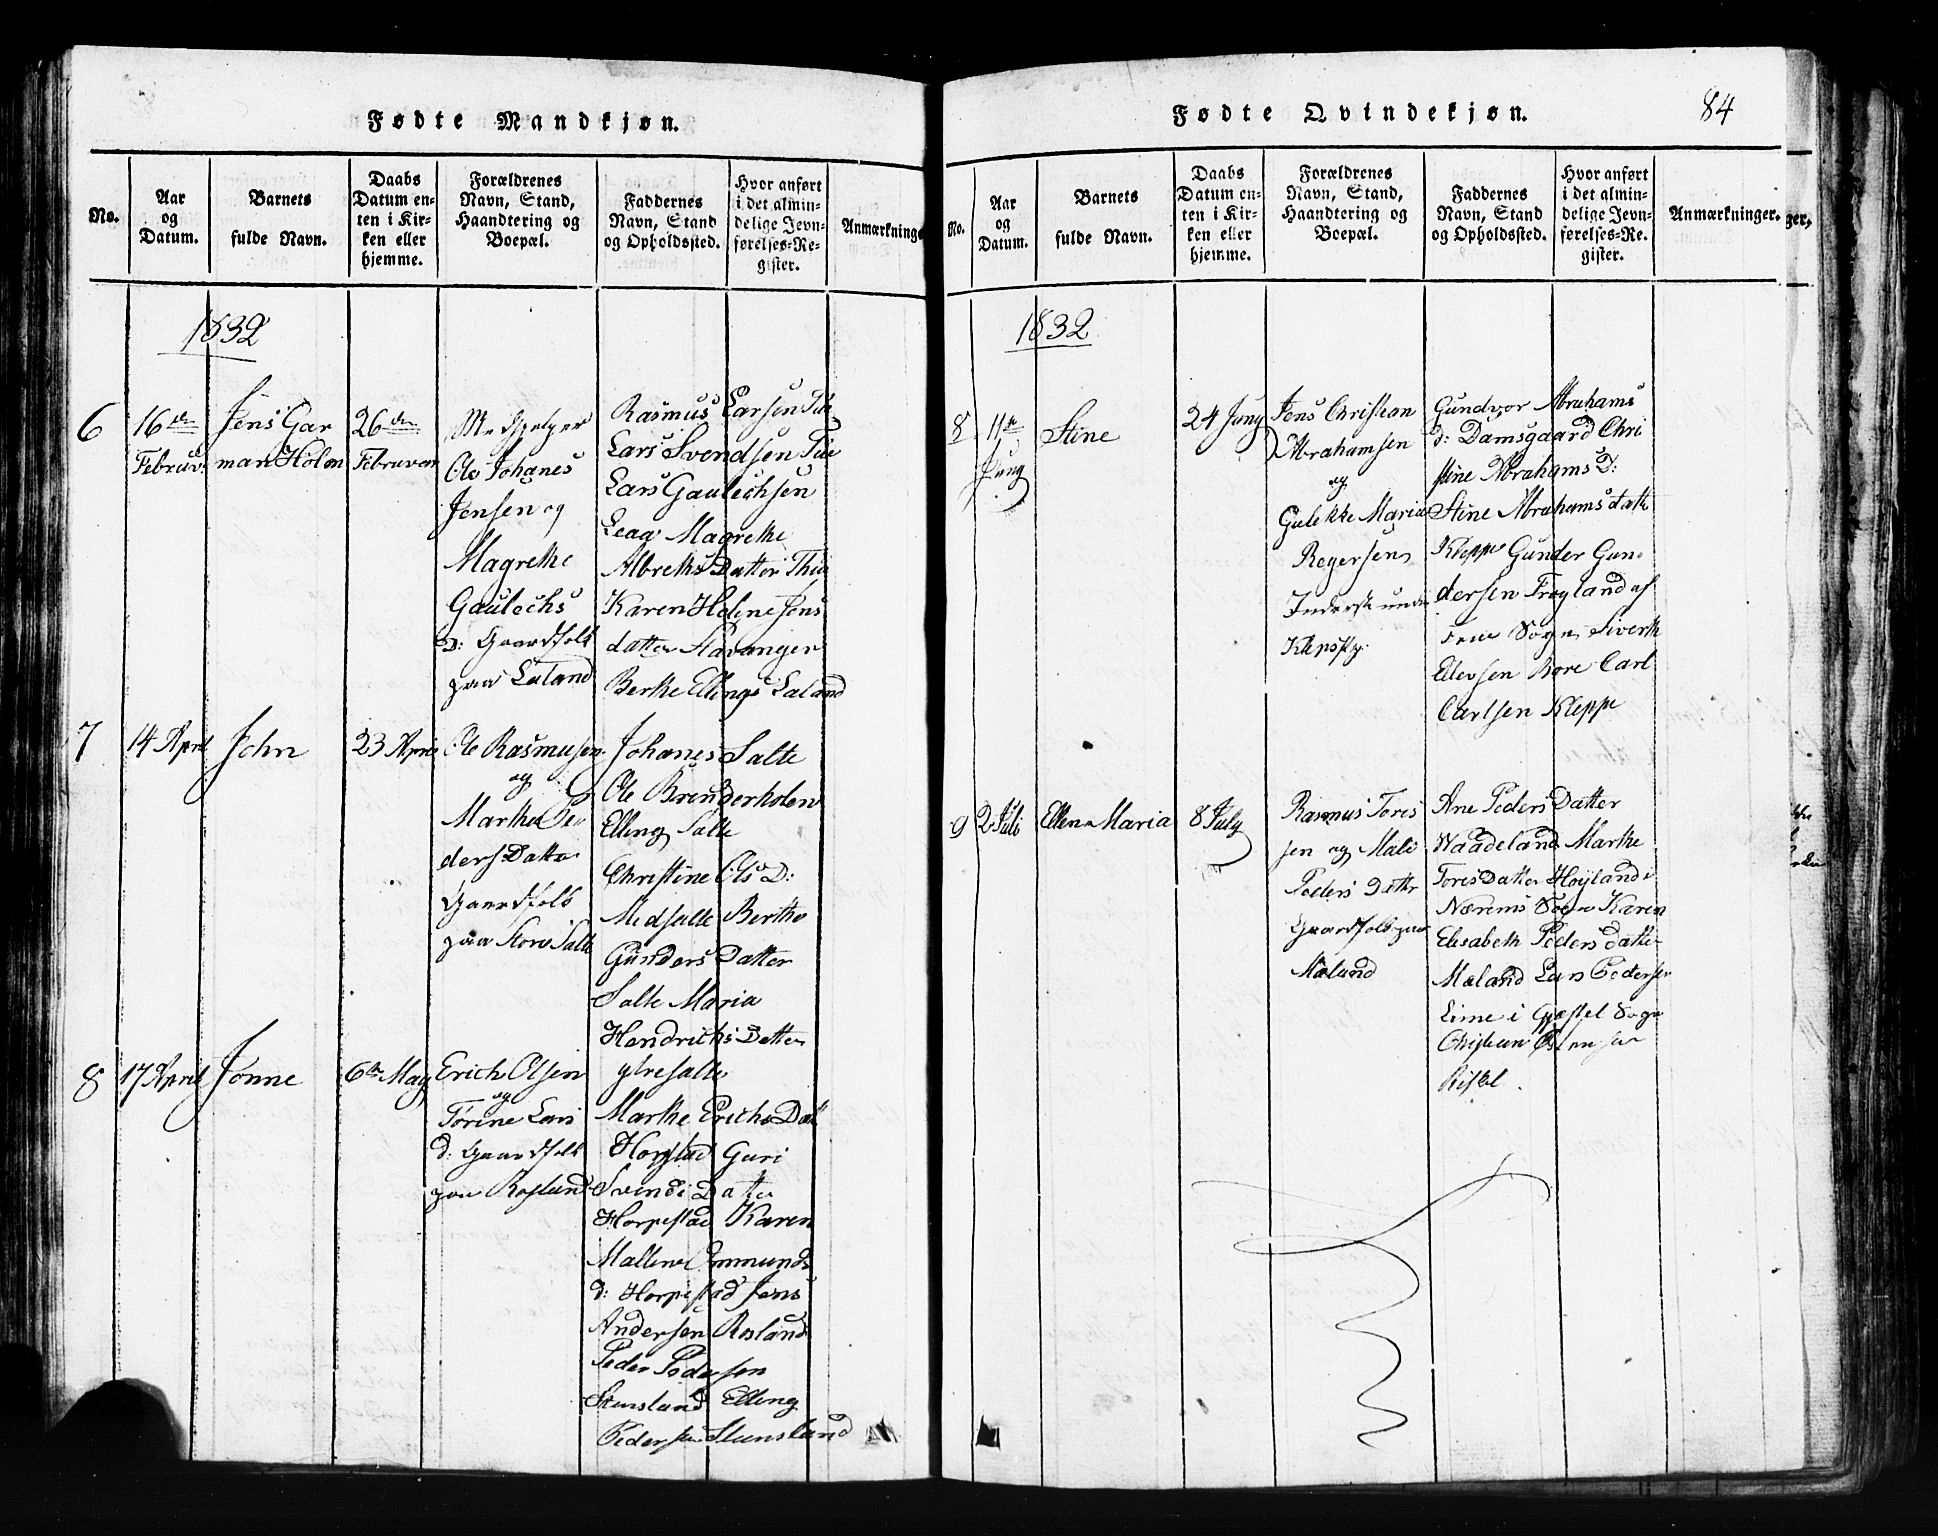 Fødte Mandkjøn.
No.
Aar
og
Datum.
Barnets
fulde Navn.
Daabs
Datum en-
ten i Kir-
ken eller
hjemme.
Forældrenes
Navn, Stand,
Haandtering og
Boepæl.
Faddernes
Navn, Stand
og Opholdssted.
Hvor anført
i det almin-
delige Jevn-
førelses-Re-
gister.
Anmærkninge
1832
6
16 den
Februar
Jens Gar
man Holm
26 den
Februar
Ole Johanes
Jensen og
Magrethe
Gaulechs
D: Gaardfolk
paa Laland
Rasmus Larsen Tu
Lars Svendsen Tue
Lars Gaulechsen
Leaa Magrethe
Albreths Datter Thu
Karen Helene Jens
datter Stavanger
Berthe Ellings Laland
7
14 April
John
23 April
Ole Rasmusen
og
Martha Pe
ders Datter
Gaardfolk
paa Store Salte
Johanes Salte
Ole Bruderholen
Elling Salte
Christine Ols D:
Medsalte Berthe
Gunders Datter
Salte Maria
Hendrichs Datter
ytresalte
8
17 April
Jonne
6te May
Erich Olsen
og
Torine Lars
d: Gaardfolk
paa Rosland
Marthe Erichs Dat
Horpstad Guri
Svends Datter
Horpestad Karen
Mallene Ommunds
d: Horpestad Jens
Andersen Rosland
Peder Pedersen
Stensland Elling
Pedersen Stensland
Fødte Qvindekjøn.
84
No.
Aar
og
Datum.
Barnets
fulde Navn.
Daabs
Datum en-
ten i Kir-
ken eller
hjemme.
Forældrenes
Navn, Stand,
Haandtering og
Boepæl.
Faddernes
Navn, Stand
og Opholdssted.
Hvor anført
i det almin-
delige Jevn-
førelses-Re-
gister.
Anmærkninger.
ger.
1832
8
11te
Juny
Stine
24 Juny
Jens Christian
Abrahamsen
og
Gulekke Maria
Regersen
Kleppe
Gundvor Abrahams
d: Damsgaard Chri
stine Abrahams D:
Stine Abrahams datt
Kleppe Gunder Gun
dersen Frøyland af
Sogn Siverth
Ellevsen Bore Carl
Carlsen Kleppe
9
2 Juli
Ellen Maria
8 July
Rasmus Tores
sen og Mali
Peders Datter
Gaardfolk paa
Mæland
Ane Peders Datter
Waadeland Marthe
Tores Datter Høyland i
Nærems Sogn Karen
Elisabeth Peders datter
Mæland Lars Pedersen
Lime i Gjestel Sogn
Christian